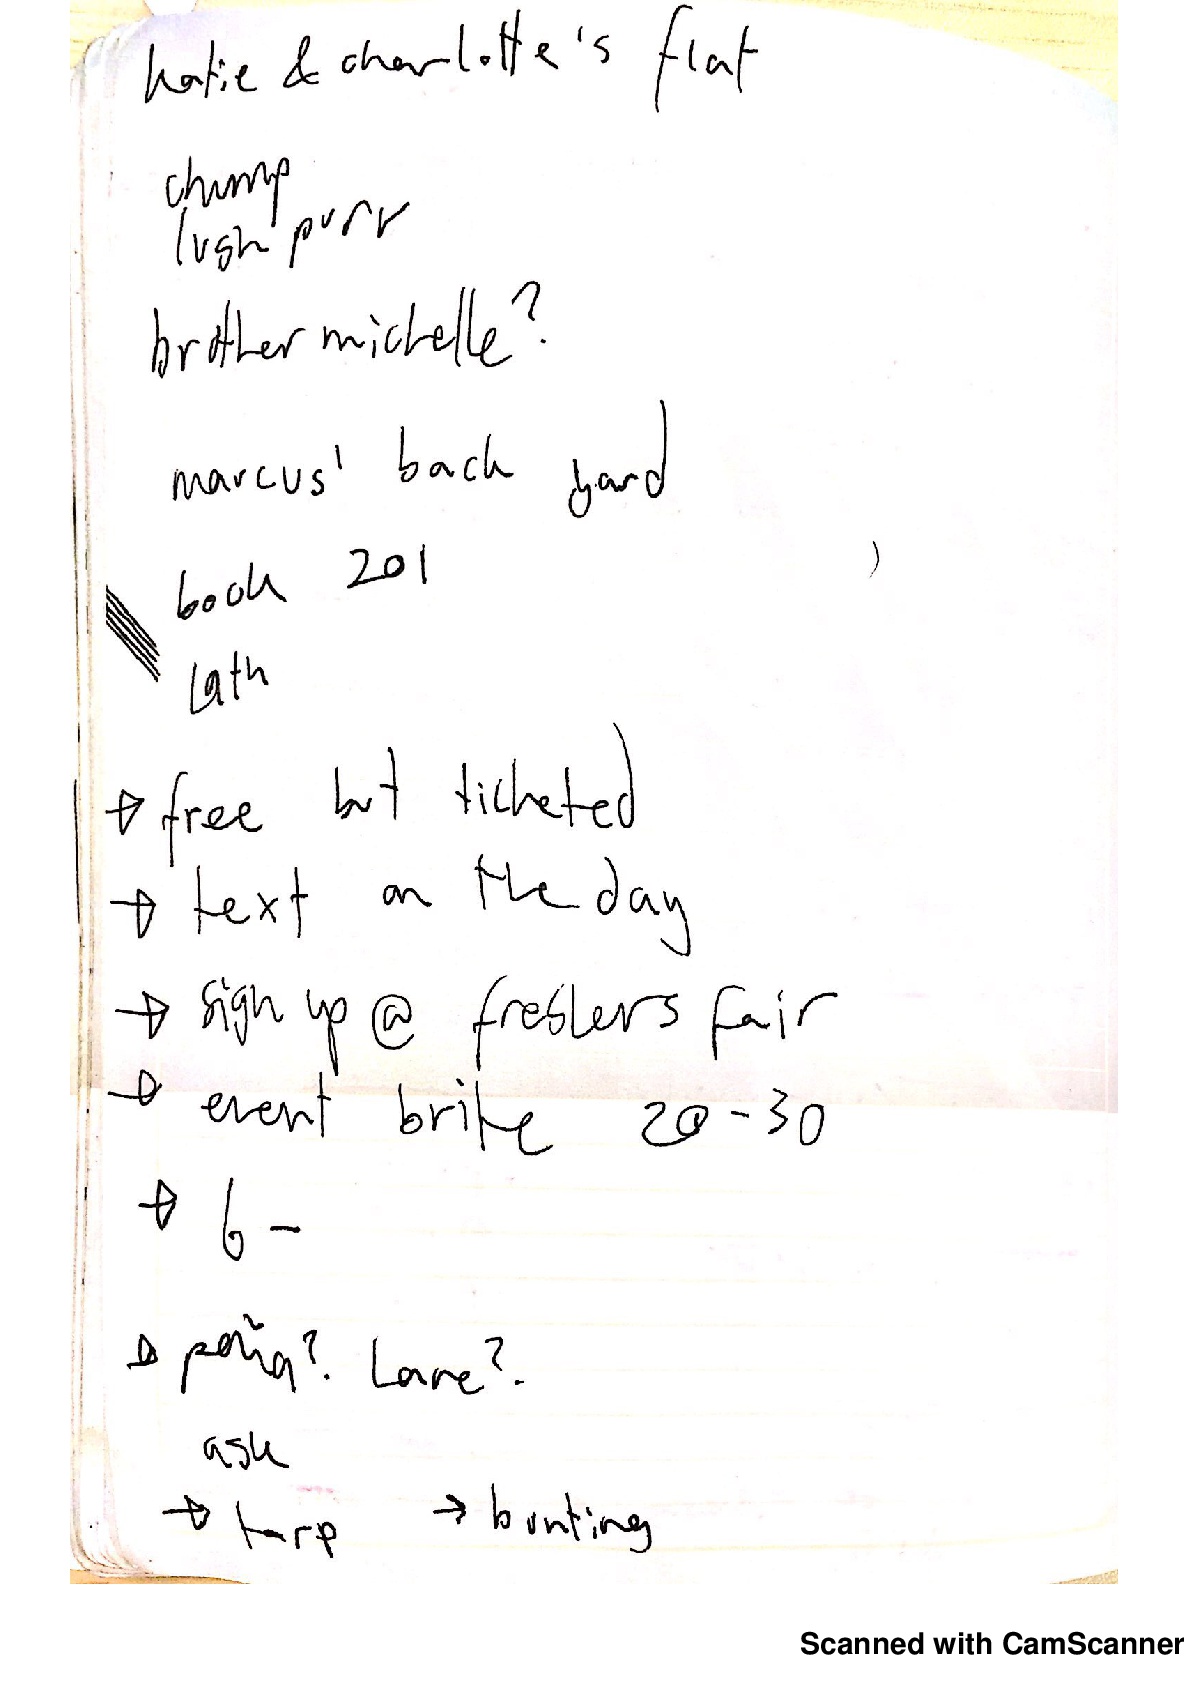 katie & charlotte's flat
chump
lush purr
brother michelle?
marcus' back yard
book 201
Lath
→ free but ticketed
→ text on the day
→ sign up @ freshers fair
→ event brite 20-30
→ 6-
→ poña?. Lane?.
ask
→ tarp → bunting
Scanned with CamScanner